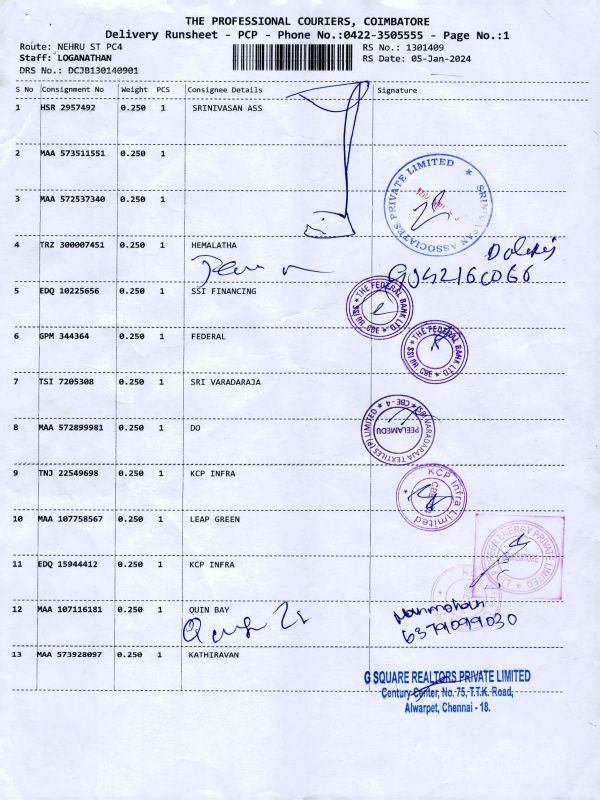 THE PROFESSIONAL COURIERS, COIMBATORE
Delivery Runsheet - PCP - Phone No.:0422-3505555 - Page No.:1
Route: NEHRU ST PC4
RS No.: 1301409
Staff: LOGANATHAN
RS Date: 05-Jan-2024
DRS No.: DCJB130140901
S No Consignment No Weight PCS Consignee Details Signature
1 HSR 2957492 0.250 1 SRINIVASAN ASS
2 MAA 573511551 0.250 1
3 MAA 572537340 0.250 1
ASSOCIATES PRIVATE LIMITED ★
4 TRZ 300007451 0.250 1 HEMALATHA
5 EDQ 10225656 0.250 1 SSI FINANCING
★ THE FEDERAL BANK LTD. ★ SSI BR. CBE
6 GPM 344364 0.250 1 FEDERAL
★ THE FEDERAL BANK LTD. ★ SSI BR. CBE
7 TSI 7205308 0.250 1 SRI VARADARAJA
8 MAA 572899981 0.250 1 DO
SRI VARADARAJA TEXTILES (P) LIMITED ★ CBE - 4 ★
PEELAMEDU
9 TNJ 22549698 0.250 1 KCP INFRA
KCP Infra Limited
CBE
10 MAA 107758567 0.250 1 LEAP GREEN
GREEN ENERGY PRIVATE LIMITED
11 EDQ 15944412 0.250 1 KCP INFRA
12 MAA 107116181 0.250 1 QUIN BAY
Manmohan
6379099030
13 MAA 573928097 0.250 1 KATHIRAVAN
G SQUARE REALTORS PRIVATE LIMITED
Century Center, No. 75, T.T.K. Road,
Alwarpet, Chennai - 18.